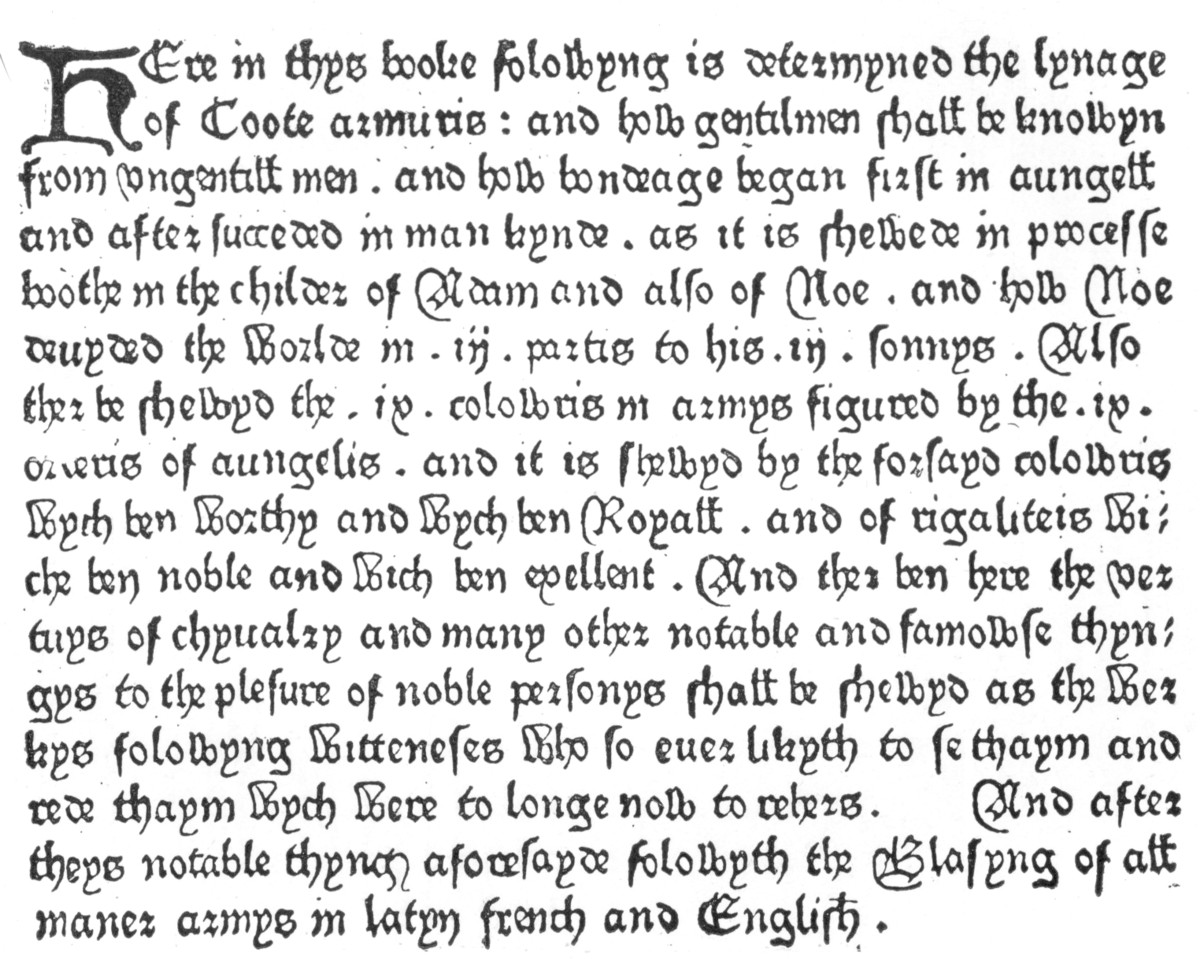 HEre in thys booke folowyng is determyned the lynage
of Coote armuris : and how gentilmen shall be knowyn
from vngentill men . and how bondeage began first in aungell
and after succeded in man kynde . as it is shewede in processe
boothe in the childer of Adam and also of Noe . and how Noe
deuyded the World in . iij . partis to his . iij . sonnys . Also
ther be shewyd the . ix . colowris in armys figured by the . ix .
orderis of aungelis . and it is shewyd by the forsayd colowris
Wych ben Worthy and Wych ben Royall . and of rigaliteis Wi⸗
che ben noble and Wich ben exellent . And ther ben here the ver
tuys of chyualry and many other notable and famowse thyn⸗
gys to the plesure of noble personys shall be shewyd as the Wer
kys folowyng Witteneses Who so euer likyth to se thaym and
rede thaym Wych Were to longe now to rehers . And after
theys notable thyngꝭ aforesayde folowyth the Blasyng of all
maner armys in latyn french and English .